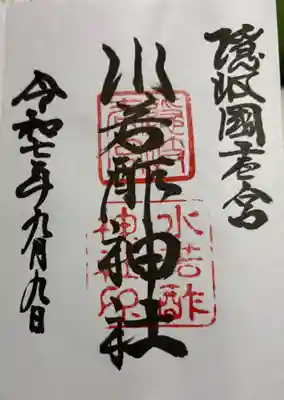 隠岐國壱宮
水若酢神社
令和七年九月九日
水若酢
神社印